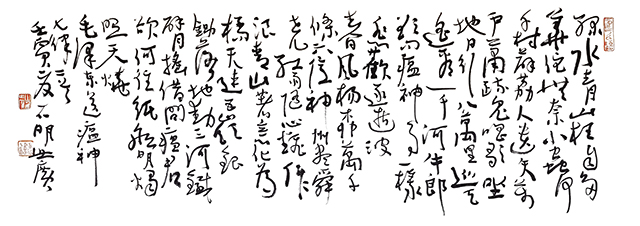 绿水青山枉自多
華佗無奈小蟲何
千村薜荔人遗矢万
户萧疏鬼唱歌坐
地日行八萬里巡天
遥看一千河牛郎
欲问瘟神事一樣
悲歡逐逝波
春风杨柳萬千
條六億神州尽舜
尧红雨随心翻作
浪青山着意化为
橋天连五岭银
锄落地动三河鐵
臂摇借问瘟君
欲何往纸船明烛
照天烧
毛泽东送瘟神
七律二首
壬寅夏石明